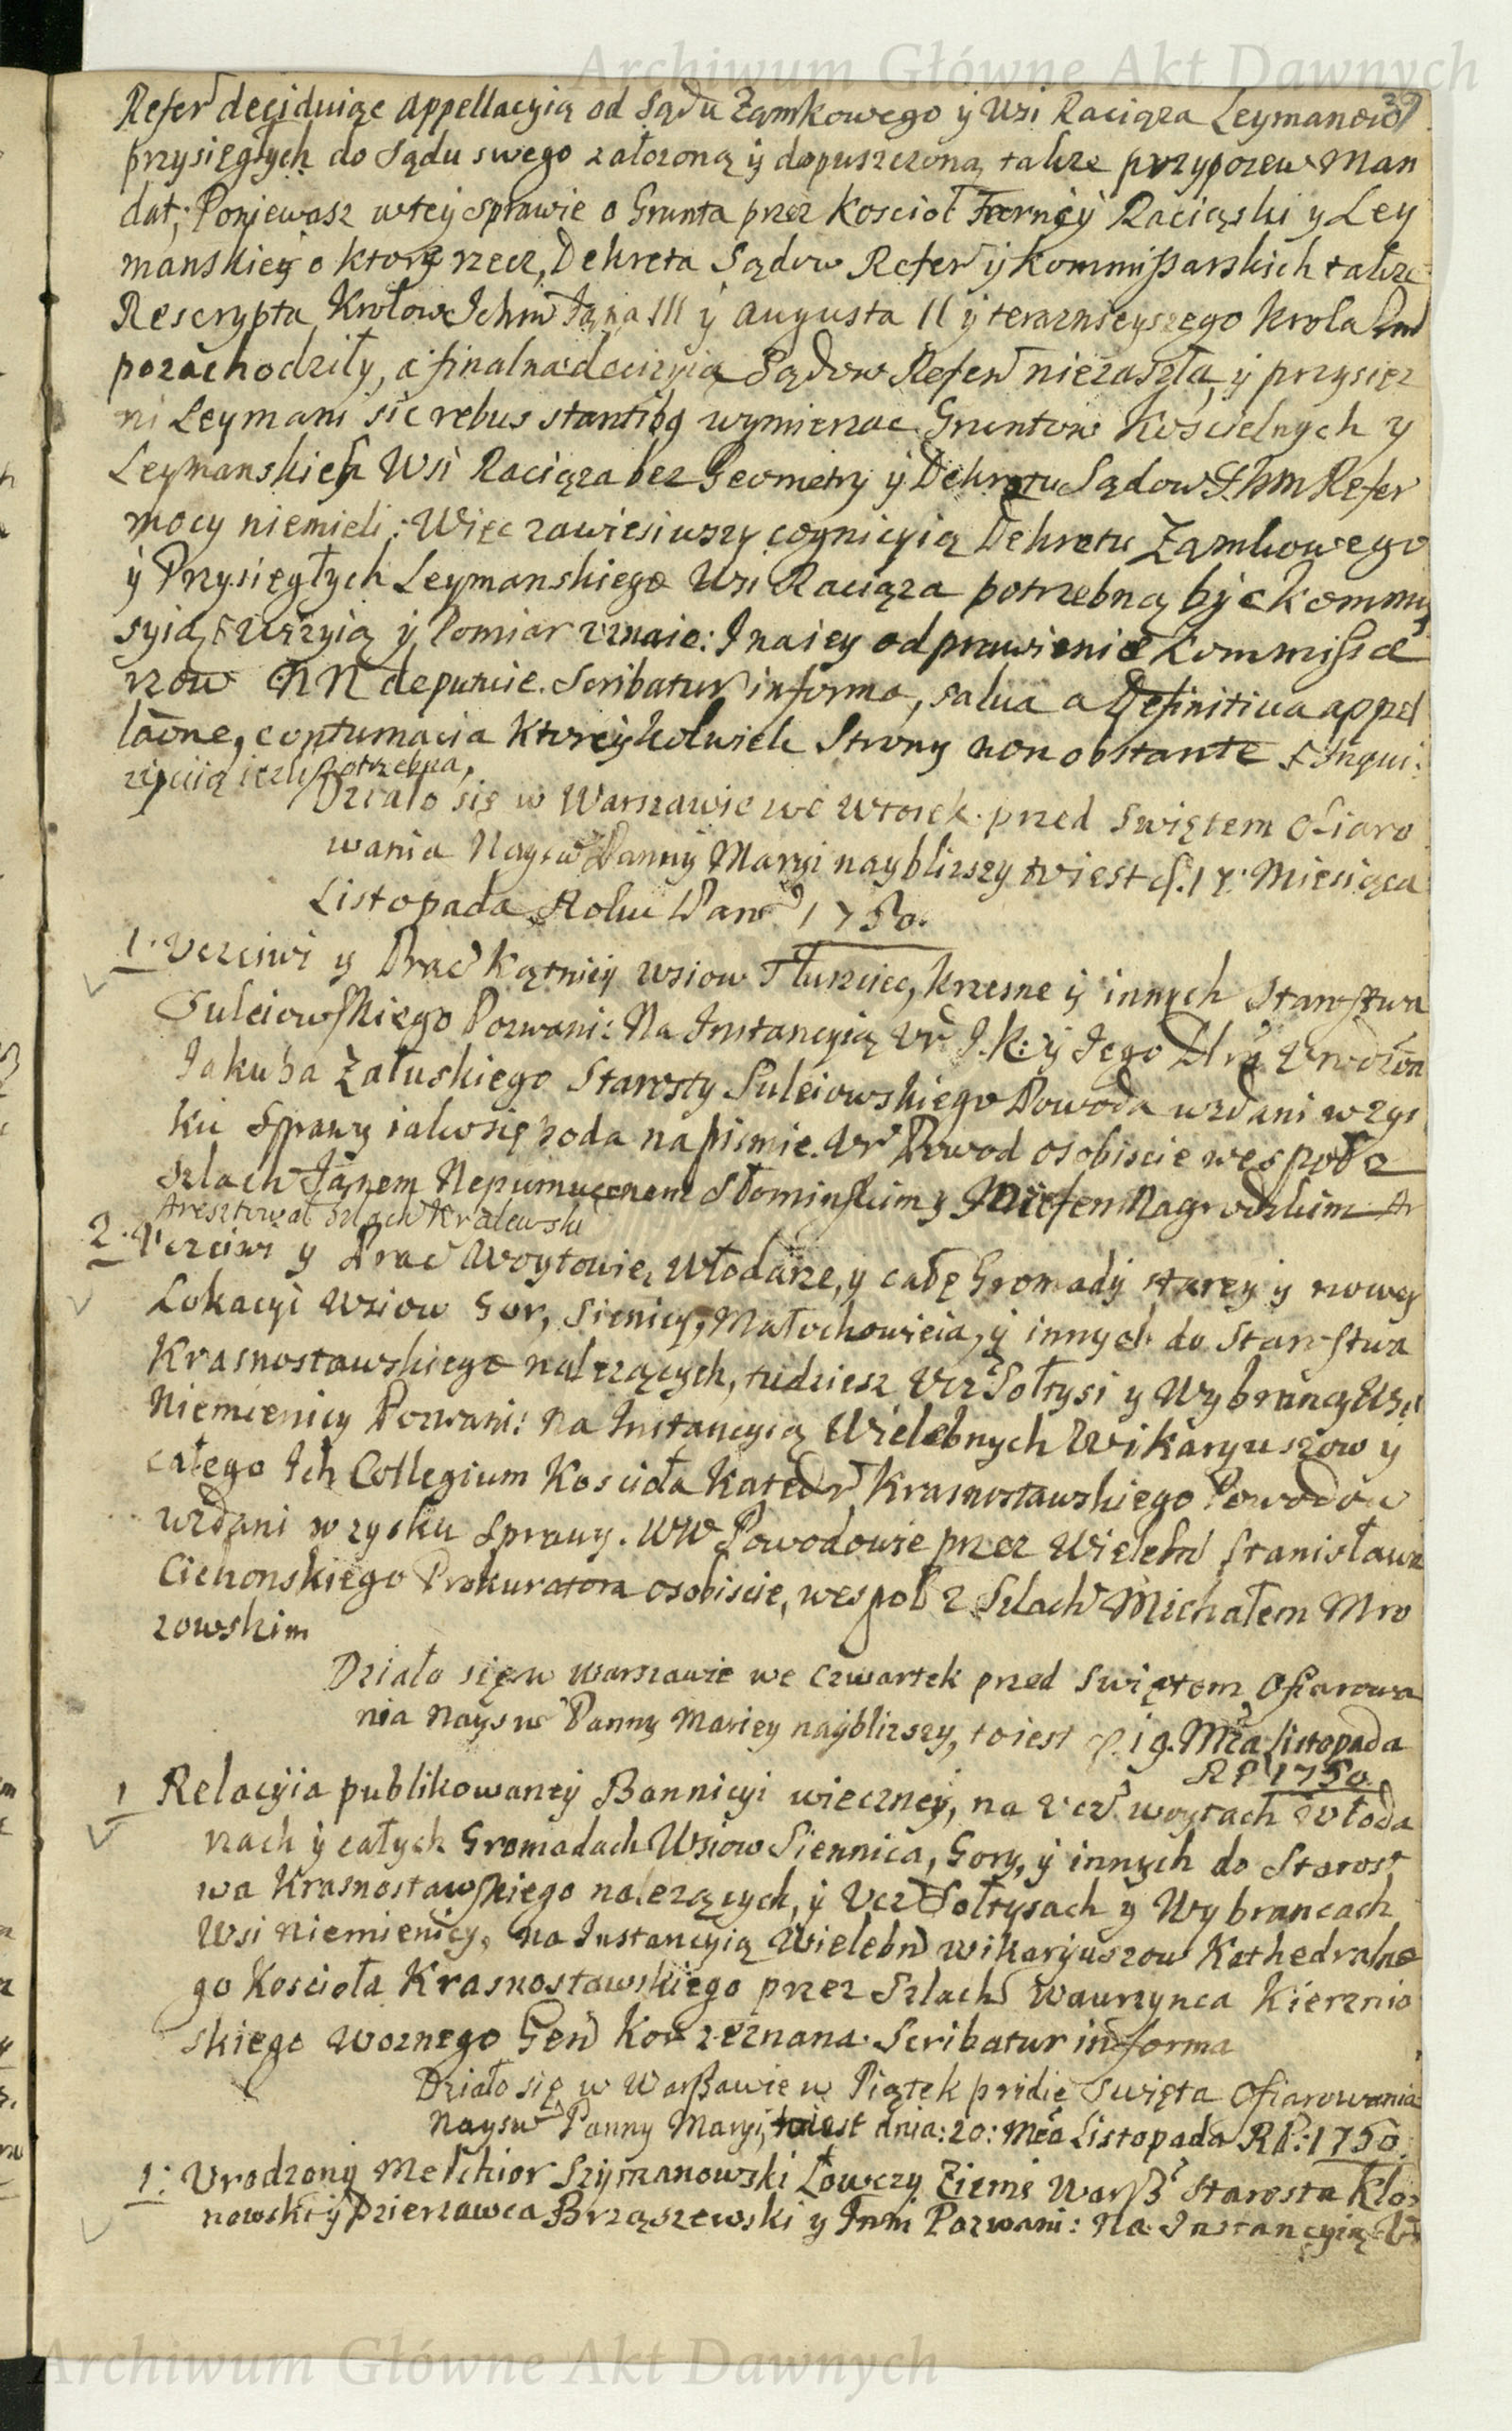 Archiwum Główne Akt Dawnych
39
Refer deciduiąc appellacyią od Sądu Zamkowego ÿ Wsi Raciąza Leymanow
przysięgłych do sądu swego załozoną ÿ dopuszczoną, takze przypozew Man
dat; Poniewasz wteÿ sprawie o Grunta przez Kosciół Farnÿ Raciąski y Ley
manskieÿ o ktorą rzecz, Dekreta Sądow Refer ÿ kommissarskich takze
Rescrypta Krolow Ichm Jana III ÿ Augusta II ÿ teraznieyszego Krola Jm
pozachodziły, a finalna decizyia Sądow Refer niezaszła, ÿ przysięz
ni Leymani sic rebus stantibq wymierzac Gruntow Koscielnych y
Leymanskich Wsi Raciąza bez Geometry ÿ Dekretu Sądow Ihm Refer
mocy niemieli: Więc zawiesiwszy cognicyią Dekretu Zamkowego
ÿ Przysięgłych Leymanskiego Wsi Raciąza potrzebną byc Kommis
syią, rewizyią ÿ Pomiar vznaie: Inaiey odprawienie Kommissa
rzow NN deputuie. Scribatur in forma, salva a Definitiva appel
laone, contumacia Ktoreÿkolwiek Strony non obstante & Inqui:
zycyią iezli potrzebna,
Działo się w Warszawie we Wtorek przed Swiętem Ofiaro
wania Nayśw Panny Maryi naybliższy to iest d. 17. Miesiąca
Listopada Roku Pan 1750.
1. Vczciwi y Prac Kątnicy wsiow Tłuszczec, Krzesne ÿ innych Starostwa
Suleiowskiego Pozwani: Na Instancyią Vr J. K: ÿ Jego Dłu Vrodzon
Jakuba Załuskiego Starosty Suleiowskiego Powoda wzdani w zys
ku Sprawy iako się poda na pismie. Vr Powod osobiscie wespoł z
Szlach Janem Nepumucenem Słominskim y Nagrodzkim Ar
Aresztował Szlach Kralewski
2. Vczciwi y Prac Woytowie, Włodarze, y całe Gromady starey y nowey
Lokacyi Wsiow Gor, Sienicy, Małochowicia, ÿ innych do Starostwa
Krasnostawskiego nalezących, tudziesz Vcz Sołtysi y Wybrancy Wsi
Niemienicy Pozwani: Na Instancyią Wielebnych Wikaryuszow ÿ
całego Ich Collegium Koscioła Katedr Krasnostawskiego Powodow
wzdani w zysku Sprawy. WW Powodowie przez Wielebn Stanisława
Cichonskiego Prokuratora osobiscie, wespoł z Szlach Michałem Mro
zowskim
Działo się w Warszawie we Czwartek przed Swiętem Ofiarowa
nia Nayśw Panny Mariey naÿblizszy, to iest d. 19. Mca Listopada
R P 1750.
1 Relacyia publikowaneÿ Bannicyi wieczney, na Vcz woytach Włoda
rzach ÿ całych Gromadach Wsiow Siennica, Gory, ÿ innych do Starost
wa Krasnostawskiego nalezących, ÿ Vcz Sołtysach y Wybrancach
Wsi Niemienicy, na Instancyią Wielebn wikaryuszow Kathedralne
go Koscioła Krasnostawskiego przez Szlach Wawrzynca Kiernio
skiego Woznego Gen Kor zeznana. Scribatur in forma
Działo się w Warszawie w Piątek pridie Swięta Ofiarowania
Nayśw Panny Maryi, toiest dnia: 20: Mca Listopada R P: 1750.
1: Vrodzony Melchior Szymanowski Łowczy Ziemi Warsz Starosta Klo
nowski ÿ Dzierzawca Brząszewski y Inni Pozwani: Na Instancyią V
Archiwum Główne Akt Dawnych